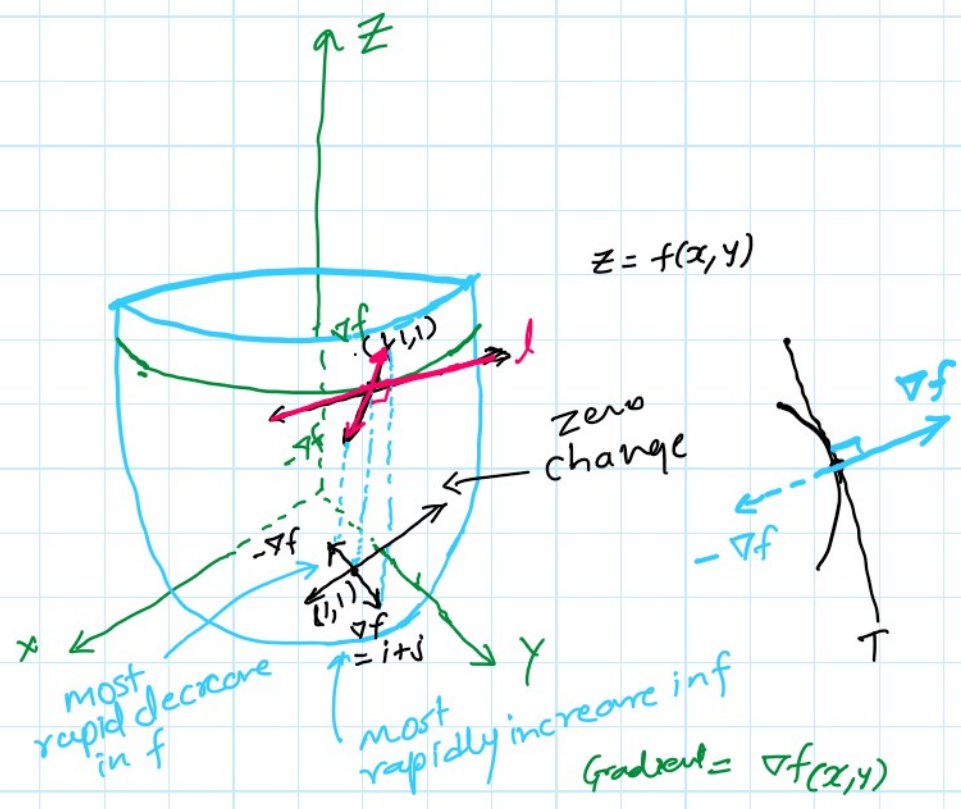 Z
z = f(x,y)
∇f
(1,1,1)
l
-∇f
zero
change
∇f
-∇f
-∇f
(1,1)
∇f
= i+j
x
y
T
most
rapid decreare
in f
most
rapidly increare in f
Gradient = ∇f(x,y)